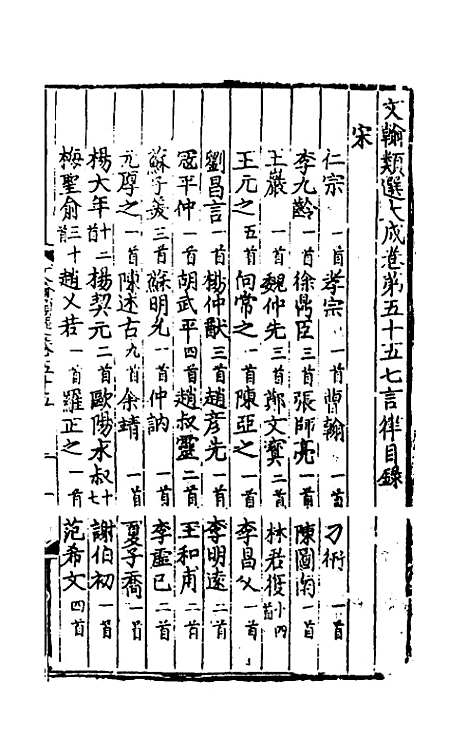 文翰類選大成卷第五十五七言律目錄
宋
仁宗一首孝宗一首曹翰一首刁衎一首
李九齡一首徐鼎臣三首張師亮一首陳圖南一首
王巖一首魏仲先三首鄭文寳二首林君復小四首
王元之五首向常之一首陳亞之一首李昌父一首
劉昌言一首楊仲猷三首趙彦先一首李明遠二首
寇平仲一首胡武平四首趙叔靈二首王和甫二首
蘇子美三首蘇明允一首仲訥一首李虛已二首
元厚之一首陳述古九首余靖一首夏子喬一首
楊大年十二首楊契元二首歐陽永叔十七首謝伯初一首
梅聖俞三十首趙乂若一首羅正之一首范希文四首